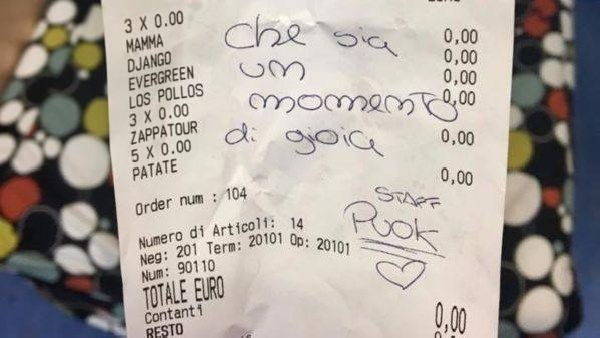 3 X 0.00
MAMMA 0,00
DJANGO 0,00
EVERGREEN 0,00
LOS POLLOS 0,00
3 X 0.00
ZAPPATOUR 0,00
5 X 0.00
PATATE 0,00
che sia
un
momento
di gioia
Order num : 104
STAFF
PUOK
Numero di Articoli: 14
Neg: 201 Term: 20101 Op: 20101
Num: 90110
TOTALE EURO 0,00
Contanti
RESTO